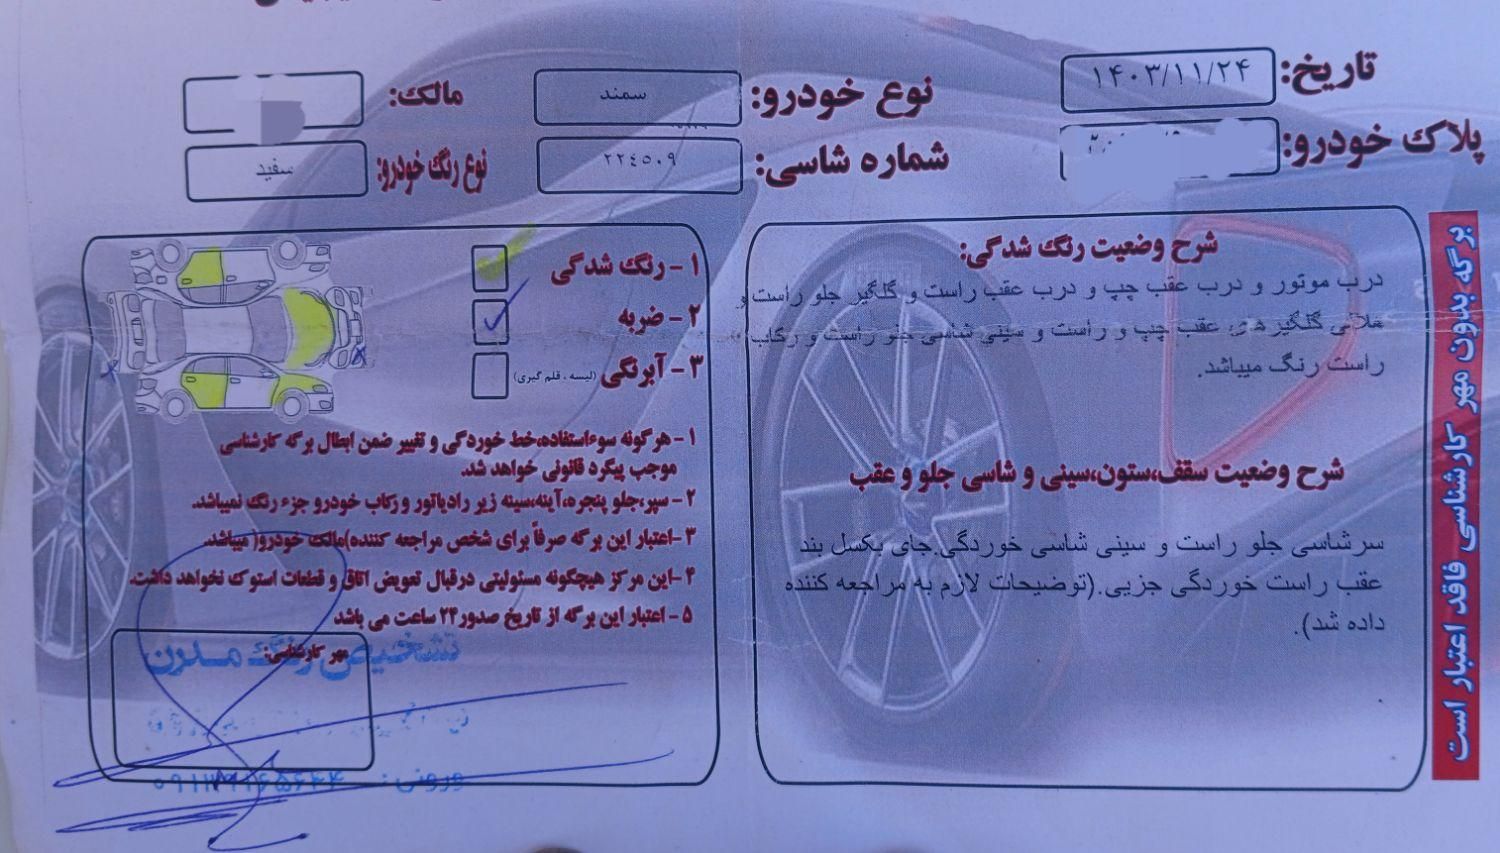 تاریخ: ۱۴۰۳/۱۱/۲۴
نوع خودرو: سمند
مالک:
پلاک خودرو:
شماره شاسی: ۲۲٤٥٠۹
نوع رنگ خودرو: سفید
شرح وضعیت رنگ شدگی:
درب موتور و درب عقب چپ و درب عقب راست و گلگیر جلو راست و
هلالی گلگیرهای عقب چپ و راست و سینی شاسی جلو راست و رکاب
راست رنگ میباشد.
شرح وضعیت سقف،ستون،سینی و شاسی جلو و عقب
سرشاسی جلو راست و سینی شاسی خوردگی.جای بکسل بند
عقب راست خوردگی جزیی.(توضیحات لازم به مراجعه کننده
داده شد).
برگه بدون مهر کارشناسی فاقد اعتبار است
۱ - رنگ شدگی
۲ - ضربه
۳ - آبرنگی (لیسه ، قلم گیری)
۱ - هرگونه سوءاستفاده،خط خوردگی و تغییر ضمن ابطال برگه کارشناسی
موجب پیگرد قانونی خواهد شد.
۲ - سپر،جلو پنجره،آینه،سینه زیر رادیاتور و رکاب خودرو جزء رنگ نمیباشد.
۳ -اعتبار این برگه صرفاً برای شخص مراجعه کننده)مالک خودرو( میباشد.
۴ -این مرکز هیچگونه مسئولیتی درقبال تعویض اتاق و قطعات استوک نخواهد داشت.
۵ - اعتبار این برگه از تاریخ صدور۲۴ ساعت می باشد
مهر کارشناسی:
تشخیص رنگ مدرن